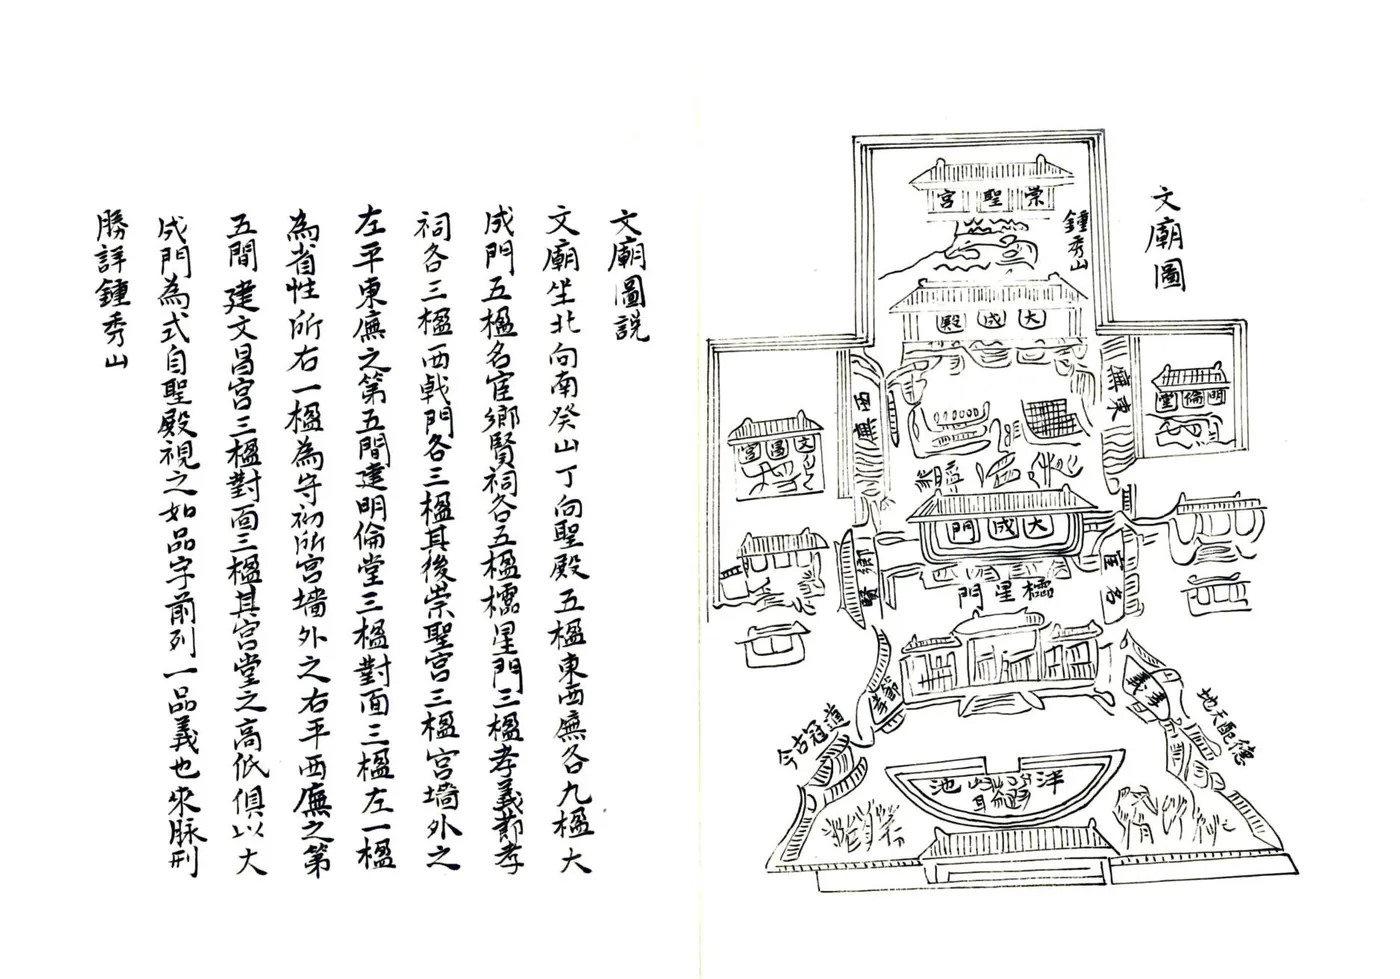 文廟圖
崇聖宮
鍾秀山
大成殿
東廡
西廡
明倫堂
文昌宮
大成門
名宦
鄉賢
櫺星門
節孝
孝義
德配天地
道冠古今
泮
池
文廟圖説
文廟坐北向南癸山丁向聖殿五楹東西廡各九楹大
成門五楹名宦鄉賢祠各五楹櫺星門三楹孝義節孝
祠各三楹西戟門各三楹其後崇聖宮三楹宮墻外之
左平東廡之第五間建明倫堂三楹對面三楹左一楹
為省性所右一楹為守初所宮墻外之右平西廡之第
五間建文昌宮三楹對面三楹其宮堂之高低俱以大
成門為式自聖殿視之如品字前列一品義也來脉刑
勝詳鍾秀山